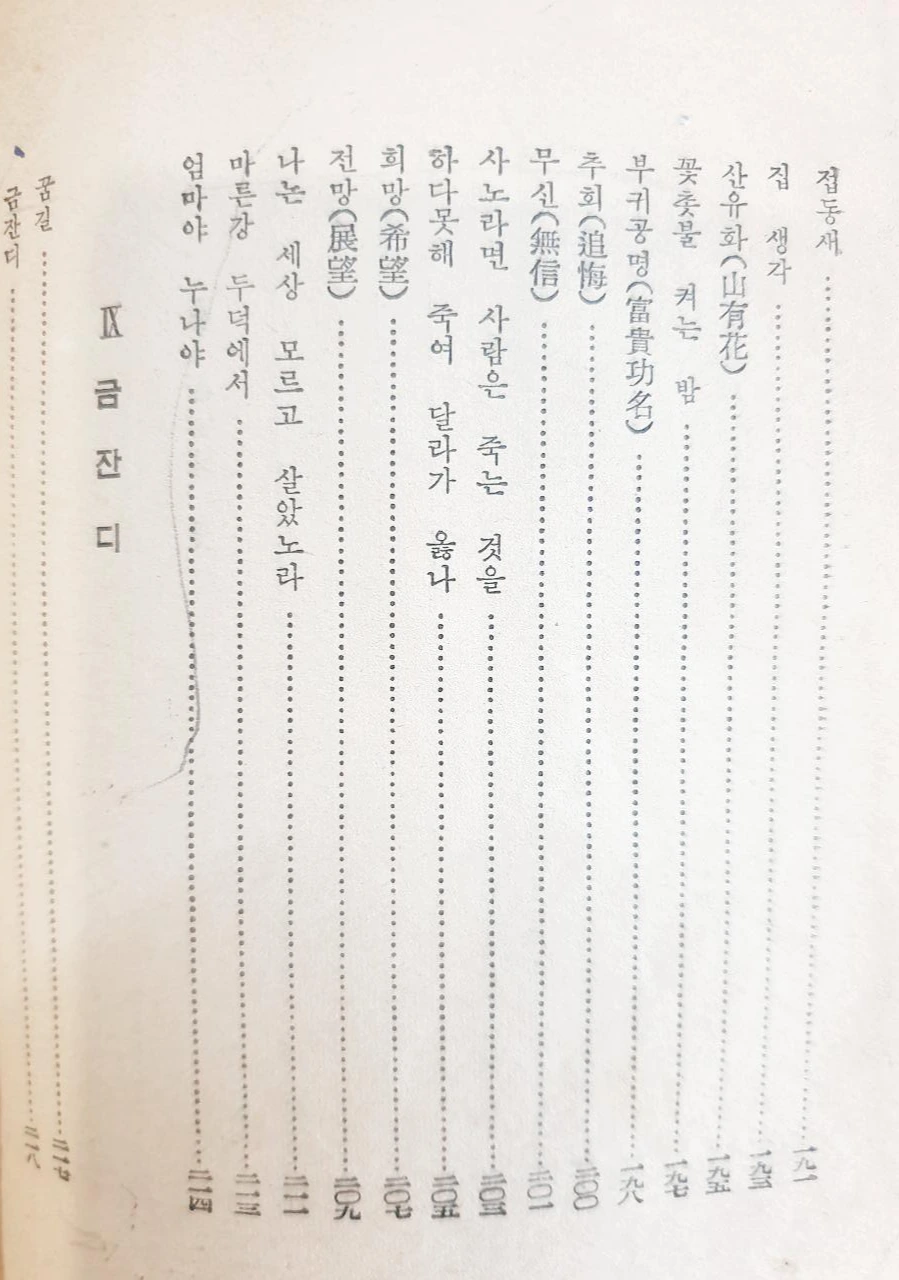 접동새 ⋯⋯ 一九一
집 생각 ⋯⋯ 一九三
산유화(山有花) ⋯⋯ 一九五
꽃촛불 켜는 밤 ⋯⋯ 一九七
부귀공명(富貴功名) ⋯⋯ 一九八
추회(追悔) ⋯⋯ 二〇〇
무신(無信) ⋯⋯ 二〇一
사노라면 사람은 죽는 것을 ⋯⋯ 二〇三
하다못해 죽여 달라가 옳나 ⋯⋯ 二〇五
희망(希望) ⋯⋯ 二〇七
전망(展望) ⋯⋯ 二〇九
나는 세상 모르고 살았노라 ⋯⋯ 二一一
마른강 두덕에서 ⋯⋯ 二一三
엄마야 누나야 ⋯⋯ 二一四
Ⅸ 금 잔 디
꿈길 ⋯⋯ 二一七
금잔디 ⋯⋯ 二一八